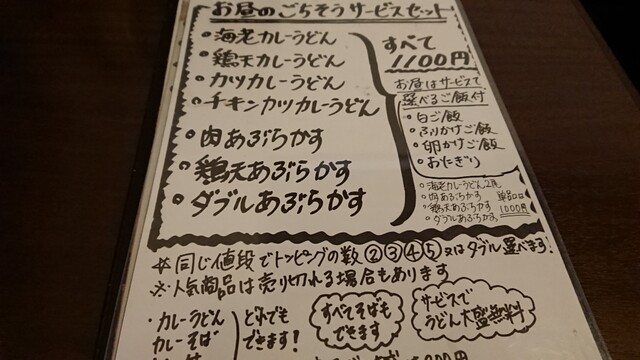 お昼のごちそうサービスセット
・海老カレーうどん
・鶏天カレーうどん
・カツカレーうどん
・チキンカツカレーうどん
・肉あぶらかす
・鶏天あぶらかす
・ダブルあぶらかす
すべて
1100円
お昼はサービスで
選べるご飯付
・白ご飯
・ふりかけご飯
・卵かけご飯
・おにぎり
・海老カレーうどん2尾
・肉あぶらかす
・鶏天あぶらかす
・ダブルあぶらかす
単品
1000円
※同じ値段でトッピングの数②③④⑤又はダブル選べます!
※人気商品は売り切れる場合もあります
・カレーうどん
カレーそば
どれでも
できます!
すべてそばも
できます
サービスで
うどん大盛無料